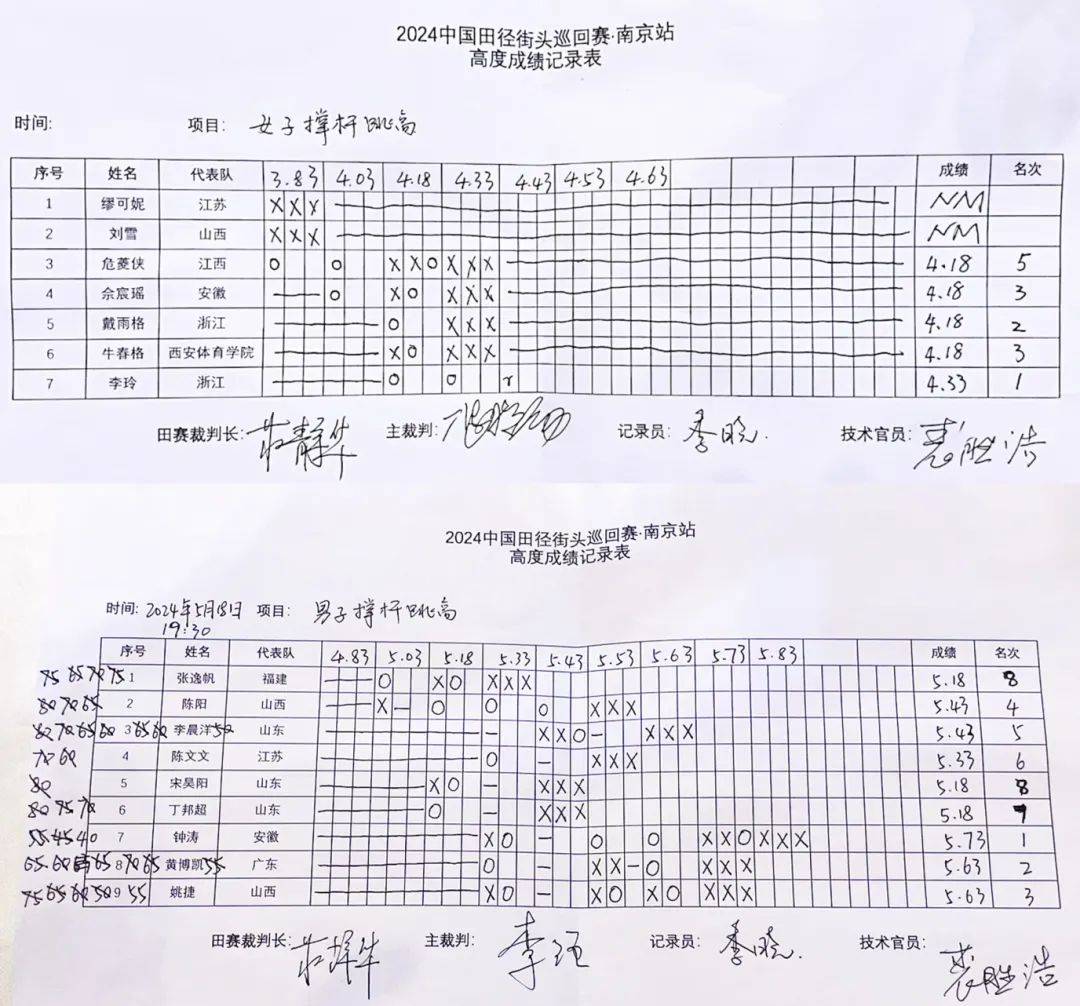 2024中国田径街头巡回赛·南京站
高度成绩记录表
时间: 项目: 女子撑杆跳高
序号 姓名 代表队 3.83 4.03 4.18 4.33 4.43 4.53 4.63 成绩 名次
1 缪可妮 江苏 XXX NM
2 刘雪 山西 XXX NM
3 危菱侠 江西 O O XXO XXX 4.18 5
4 佘宸瑶 安徽 — O XO XXX 4.18 3
5 戴雨格 浙江 — O XXX 4.18 2
6 牛春格 西安体育学院 — XO XXX 4.18 3
7 李玲 浙江 — O O r 4.33 1
田赛裁判长: 主裁判: 记录员: 季晓. 技术官员: 袁胜浩
2024中国田径街头巡回赛·南京站
高度成绩记录表
时间: 2024年5月18日 项目: 男子撑杆跳高
19:30
序号 姓名 代表队 4.83 5.03 5.18 5.33 5.43 5.53 5.63 5.73 5.83 成绩 名次
1 张逸帆 福建 — O XO XXX 5.18 8
2 陈阳 山西 — X— O O O XXX 5.43 4
3 李晨洋 山东 — — XXO — XXX 5.43 5
4 陈文文 江苏 — O — XXX 5.33 6
80 5 宋昊阳 山东 — XO — XXX 5.18 8
6 丁邦超 山东 — O — XXX 5.18 7
7 钟涛 安徽 — XO — O O XXO XXX 5.73 1
8 黄博凯 广东 — O — XX— O XXX 5.63 2
9 姚捷 山西 — XO — XO XO XXX 5.63 3
田赛裁判长: 主裁判: 记录员: 季晓. 技术官员: 袁胜浩